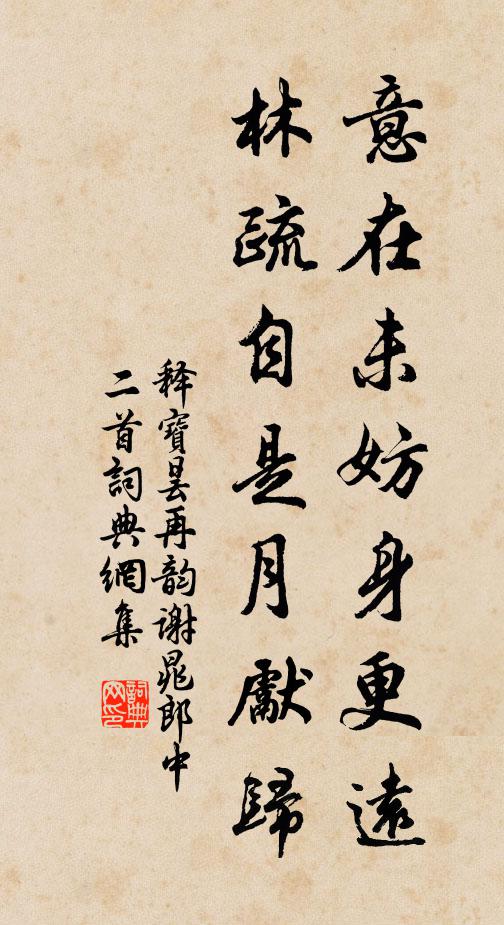 意在未妨身更遠
林疏自是月獻歸
释寶昙再韵謝晁郎中
二首詞典網集
詞典网印